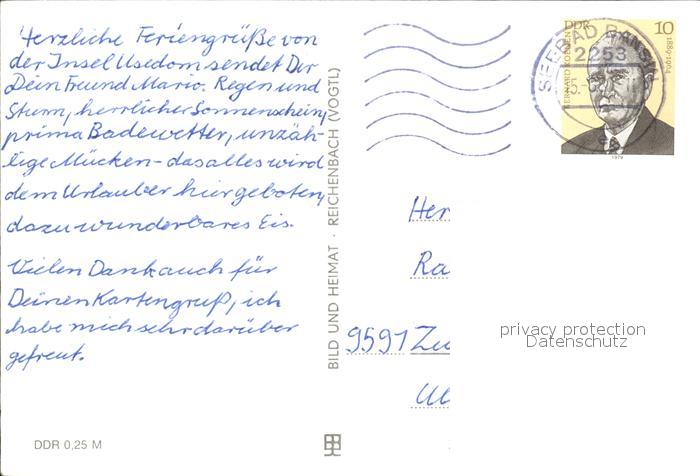 Herzliche Feriengrüße von
der Insel Usedom sendet Dir
Dein Freund Mario. Regen und
Sturm, herrlicher Sonnenschein,
prima Badewetter, unzäh-
lige Mücken - das alles wird
dem Urlauber hier geboten,
dazu wunderbares Eis.
Vielen Dank auch für
Deinen Kartengruß, ich
habe mich sehr darüber
gefreut.
DDR 0,25 M
BILD UND HEIMAT · REICHENBACH (VOGTL)
DDR 10
1889-1964
1979
SEEBAD BANSIN
2253
Her
Ra
9591 Zw
privacy protection
Datenschutz